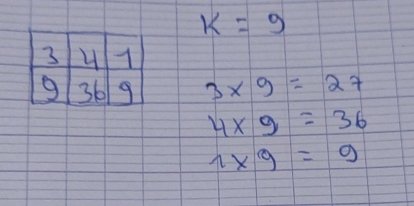 K = 9
3 4 1
9 36 9
3 x 9 = 27
4 x 9 = 36
1 x 9 = 9